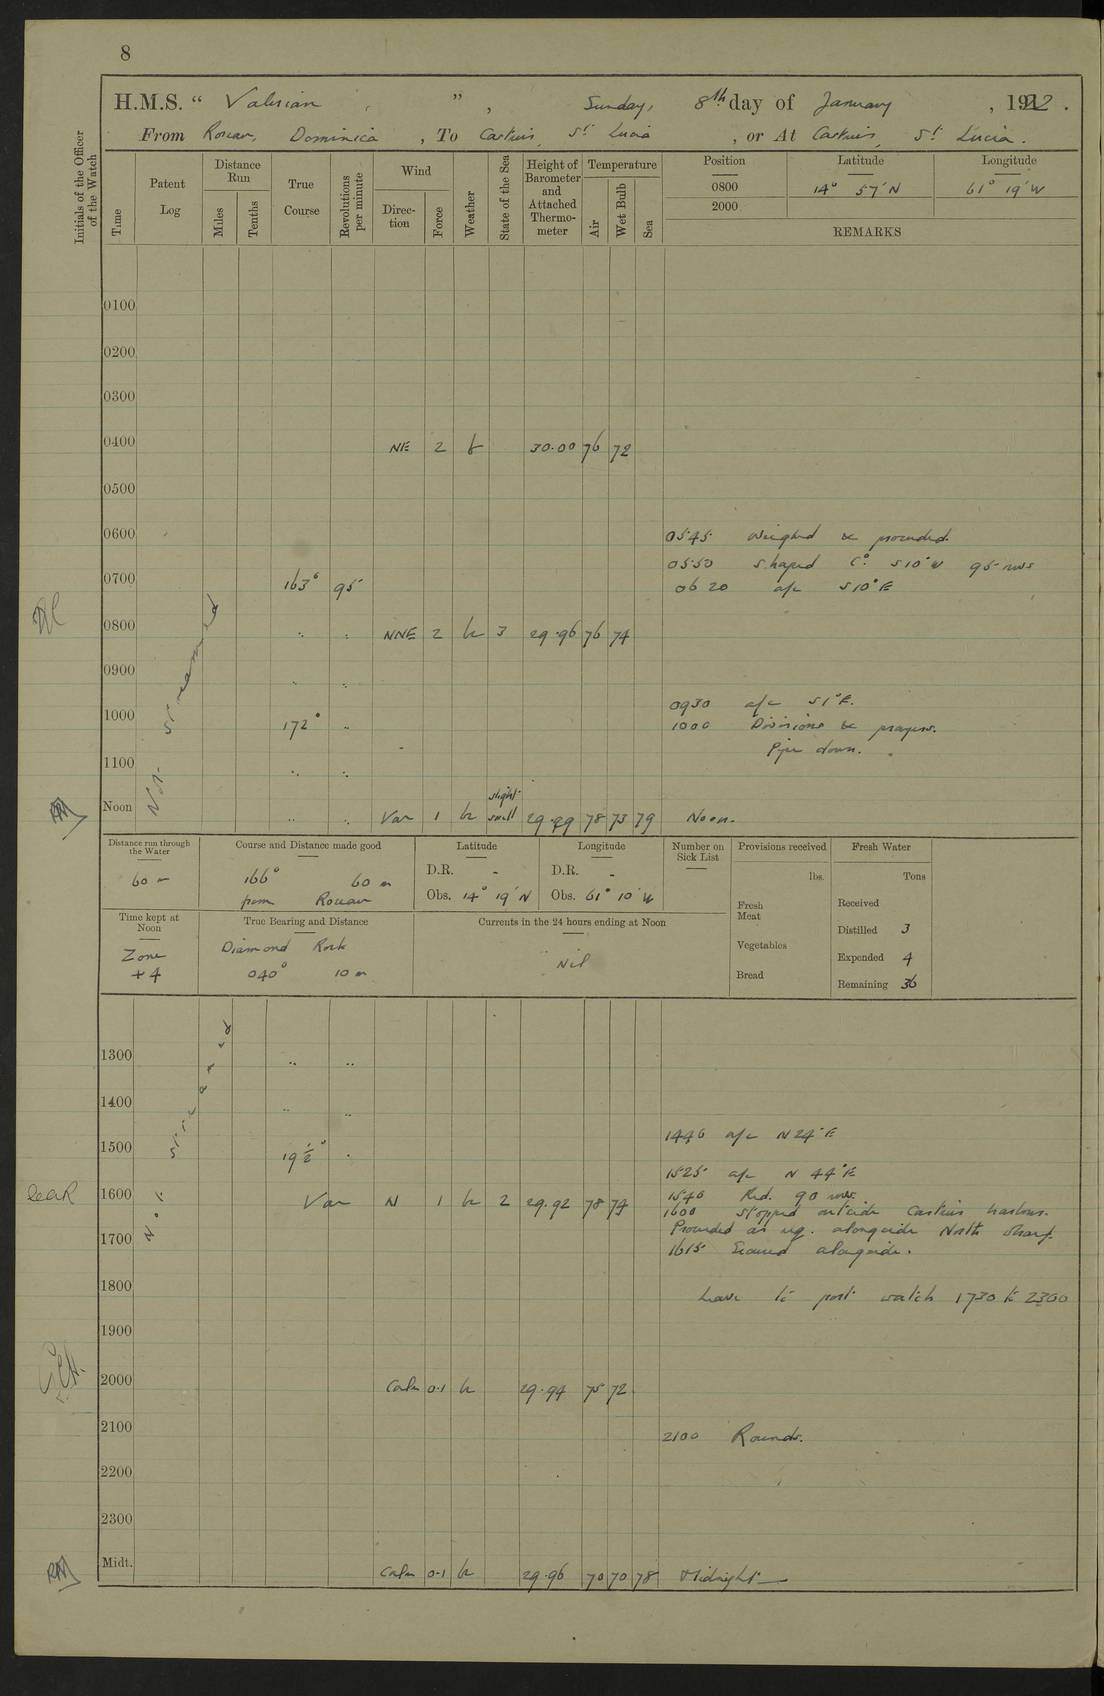 8
H.M.S. “ Valerian ” , Sunday, 8th day of January , 1922 .
From Roseau, Dominica , To Castries, St Lucia , or At Castries, St Lucia.
Initials of the Officer of the Watch
Time
Patent Log
Distance Run
Miles
Tenths
True Course
Revolutions per minute
Wind
Direction
Force
Weather
State of the Sea
Height of Barometer and Attached Thermometer
Temperature
Air
Wet Bulb
Sea
Position Latitude Longitude
0800 14° 57' N 61° 19' W
2000
REMARKS
0100
0200
0300
0400 NE 2 30.00 76 72
0500
0600 0545 Weighed & proceeded.
0550 Shaped Co. S10°W 95 revs
0700 163° 95 0620 a/c S10°E
0800 " " NNE 2 bc 3 29.96 76 74
0900 " "
0930 a/c S1°E.
1000 172° " 1000 Divisions & prayers.
Pipe down.
1100 " "
Not Streamed
Noon " " Var 1 bc slight swell 29.99 78 73 79 Noon.
Distance run through the Water
60 m
Course and Distance made good
166° 60 m
from Roseau
Latitude
D.R. -
Obs. 14° 19' N
Longitude
D.R. -
Obs. 61° 10' W
Number on Sick List
Provisions received
lbs.
Fresh Meat
Vegetables
Bread
Fresh Water
Tons
Received
Distilled 3
Expended 4
Remaining 36
Time kept at Noon
Zone
+4
True Bearing and Distance
Diamond Rock
040° 10 m
Currents in the 24 hours ending at Noon
Nil
1300 " "
1400 " "
Not Streamed
1440 a/c N24°E
1500 19½° "
1525 a/c N 44°E
1540 Red. 90 revs
1600 Var N 1 bc 2 29.92 78 74 1600 Stopped outside Castries harbour.
Proceeded as req. alongside North Wharf.
1700 1615 Secured alongside.
1800 Leave to port watch 1730 to 2300
1900
2000 Calm 0-1 bc 29.94 75 72
2100 2100 Rounds.
2200
2300
Midt. Calm 0-1 bc 29.96 70 70 78 Midnight